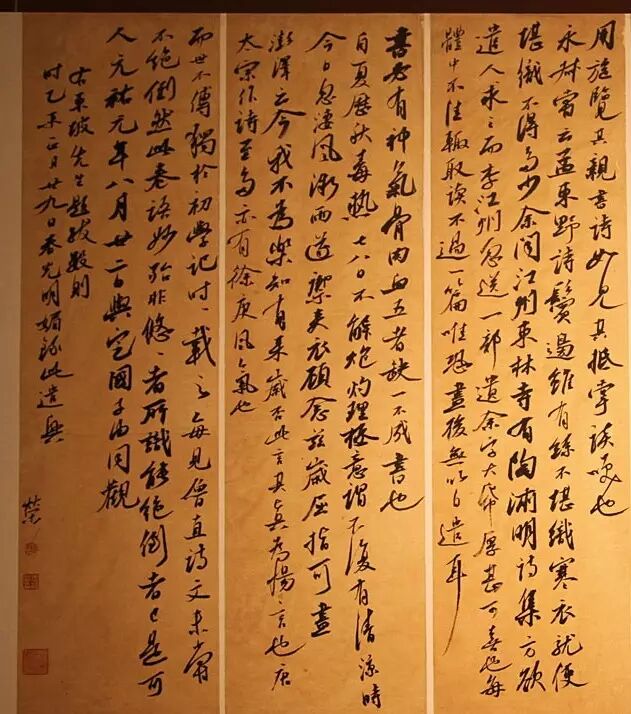 用旋覽其親書詩如見其抵掌談笑也
永叔嘗云孟東野詩鬢邊雖有絲不堪織寒衣就使
堪織不得多少余聞江州東林寺有陶淵明詩集方欲
遣人求之而李江州忽送一部遺余字大紙厚甚可喜也每
體中不佳輒取讀不過一篇唯恐盡後無以自遣耳
書必有神氣骨肉血五者缺一不成書也
自夏歷秋毒熱七八日不解炮灼理極意謂不復有清涼時
今日忽淒風微雨遂禦夾衣顧念茲歲屈指可盡
澎澤云今我不為樂知有来歲否此言真為惕言也唐
太宗作詩至多亦有徐庾風氣也
而世不傳獨於初學記時々載之每見魯直詩文未嘗
不絕倒然此卷語妙殆非悠々者所識能絕倒者已是可
人元祐元年八月廿二日與定國子由同觀
右東坡先生題跋數則
時乙未正月廿九日春光明媚錄此遣興